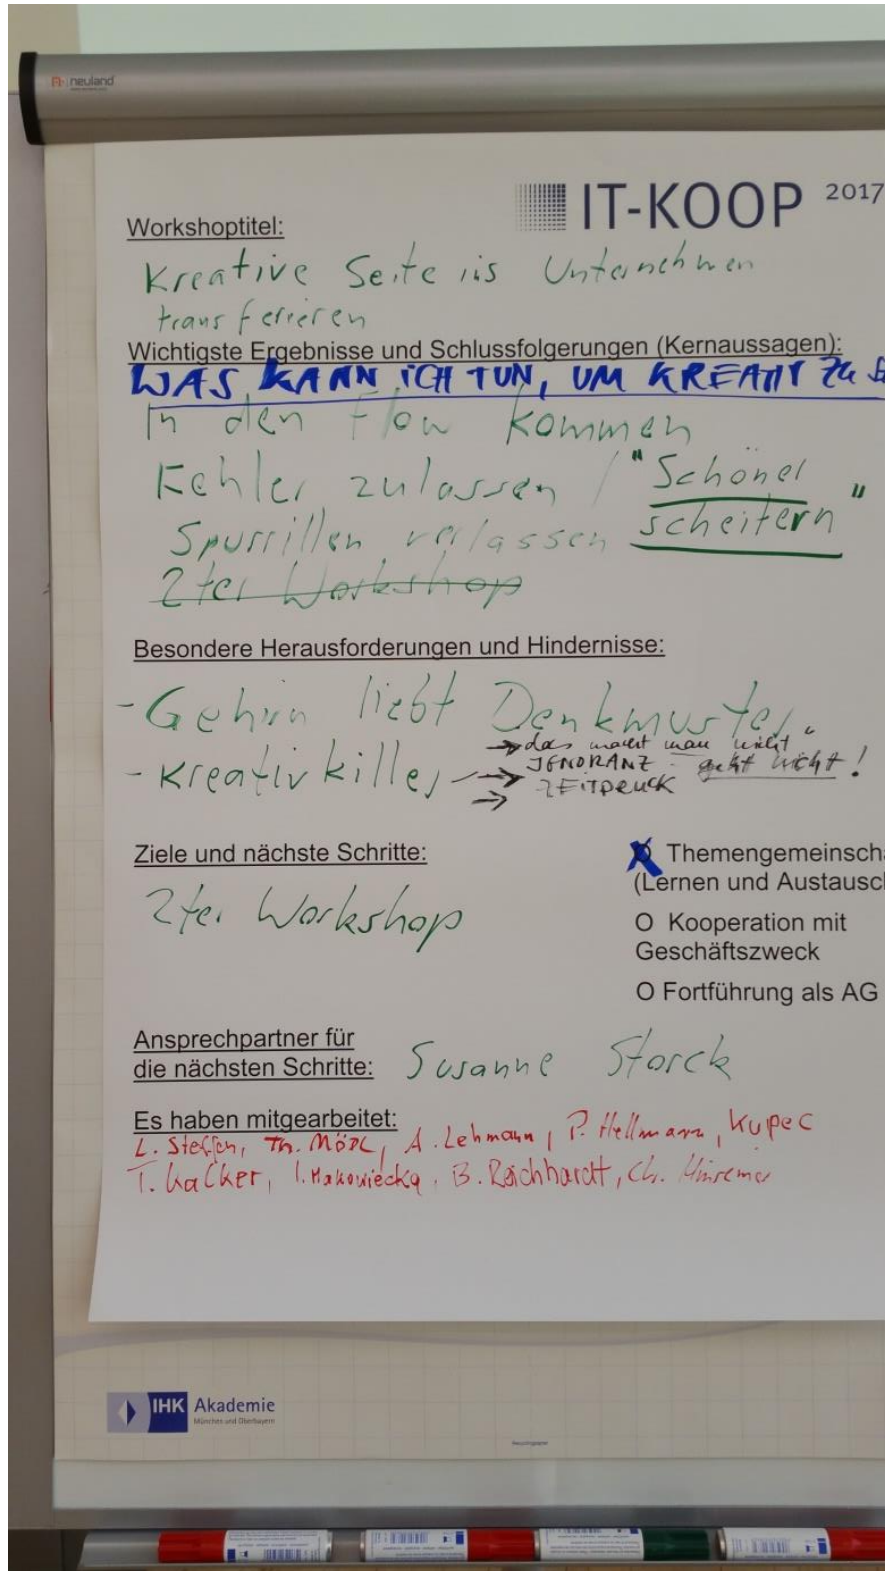 neuland
IT-KOOP 2017
Workshoptitel:
Kreative Seite ins Unternehmen
transferieren
Wichtigste Ergebnisse und Schlussfolgerungen (Kernaussagen):
WAS KANN ICH TUN, UM KREATIV ZU
In den Flow kommen
Fehler zulassen / "Schöner
Spurrillen verlassen scheitern"
2ter Workshop
Besondere Herausforderungen und Hindernisse:
- Gehirn liebt Denkmuster
- Kreativkiller → das macht man nicht
→ IGNORANZ - geht nicht!
→ ZEITDRUCK
Ziele und nächste Schritte:
2ter Workshop
Themengemeinscha
(Lernen und Austausch
O Kooperation mit
Geschäftszweck
O Fortführung als AG
Ansprechpartner für
die nächsten Schritte: Susanne Storck
Es haben mitgearbeitet:
L. Steffen, Th. A. Lehmann, P. Hellmann, Kupec
T. I. Makowiecka, B. Reichhardt, Ch.
IHK Akademie
München und Oberbayern